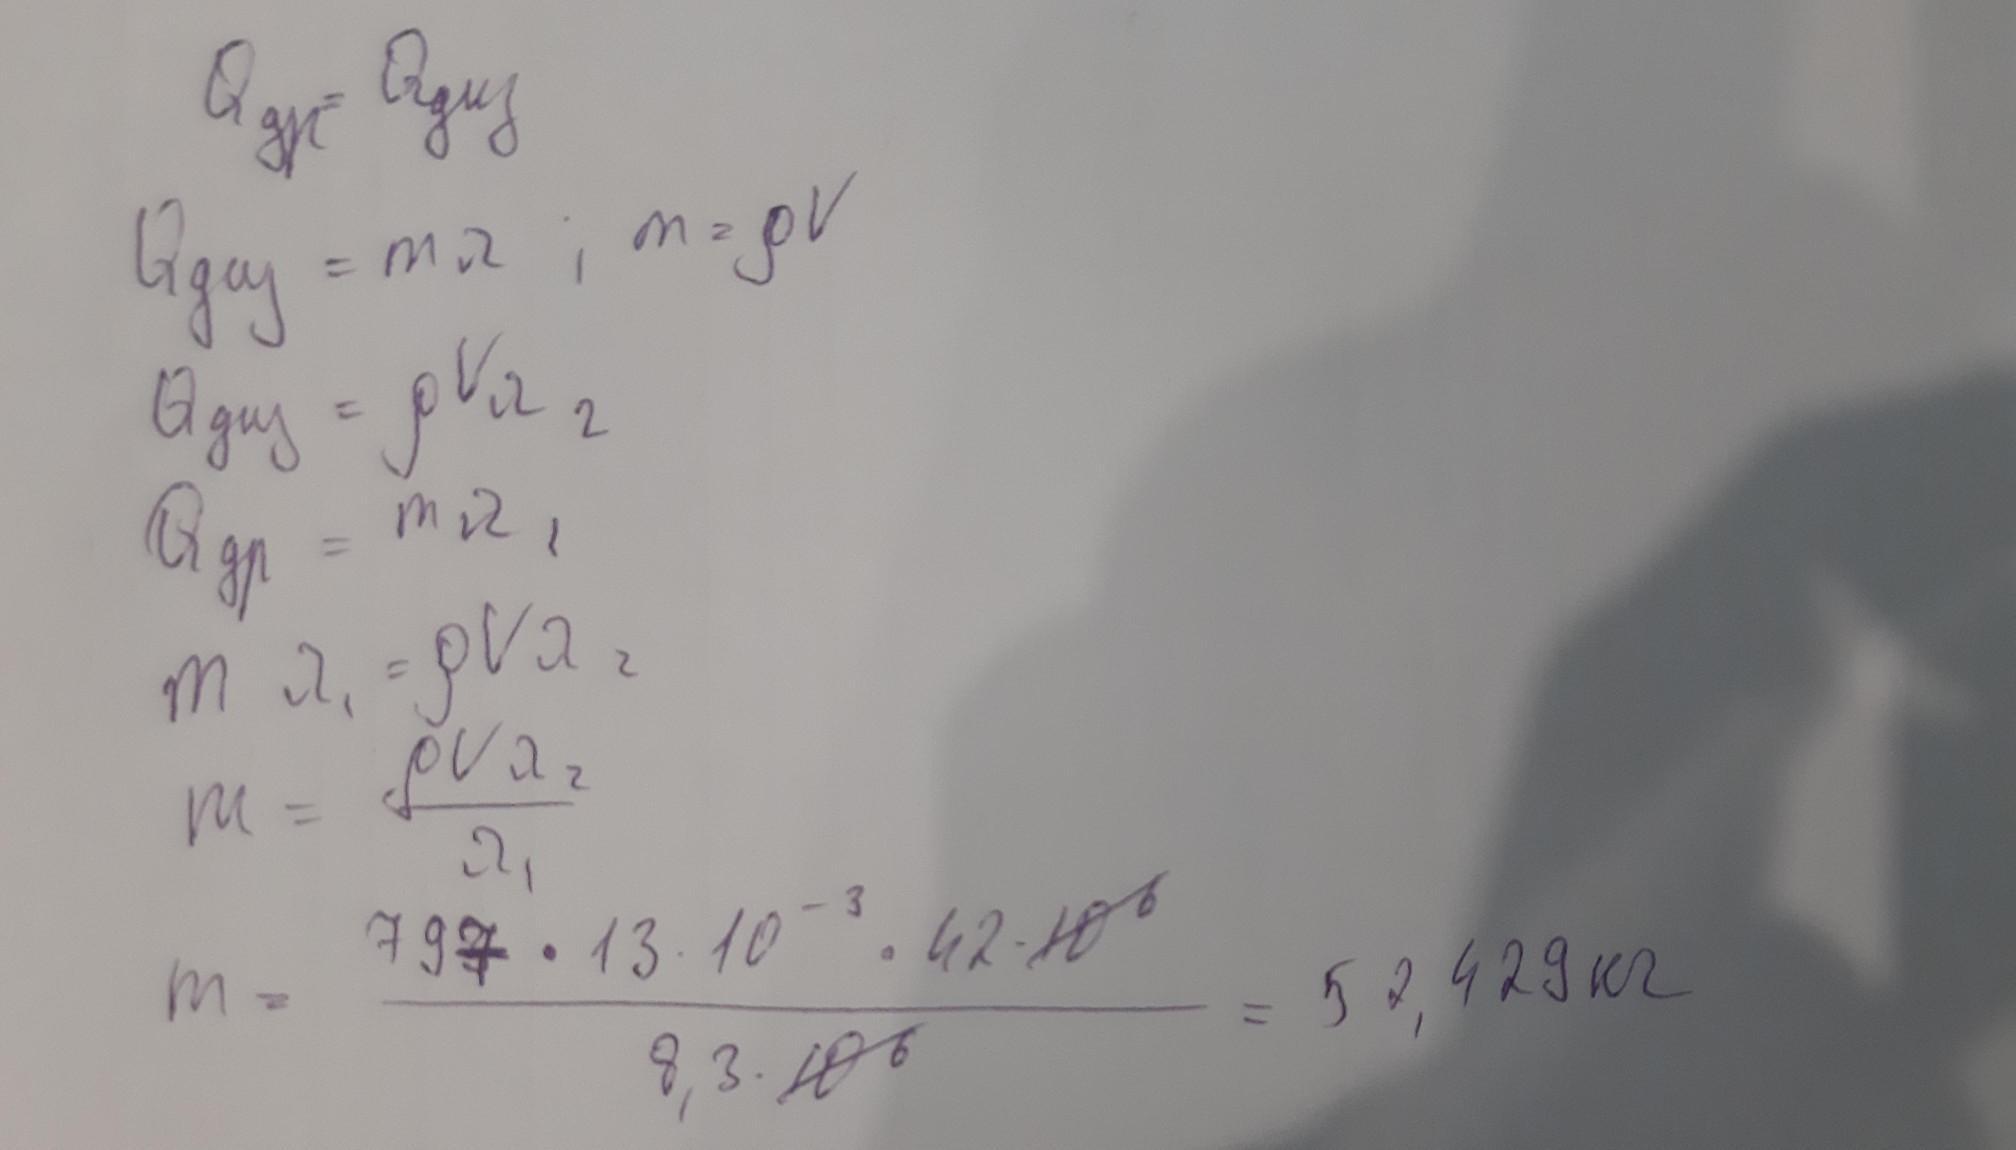 Qдр = Qдиз
Qдиз = mλ ; m = ρV
Qдиз = ρVλ₂
Qдр = mλ₁
m λ₁ = ρVλ₂
m = ρVλ₂ / λ₁
m = 797 · 13 · 10⁻³ · 42 · 10⁶ / 8,3 · 10⁶ = 52,429 кг